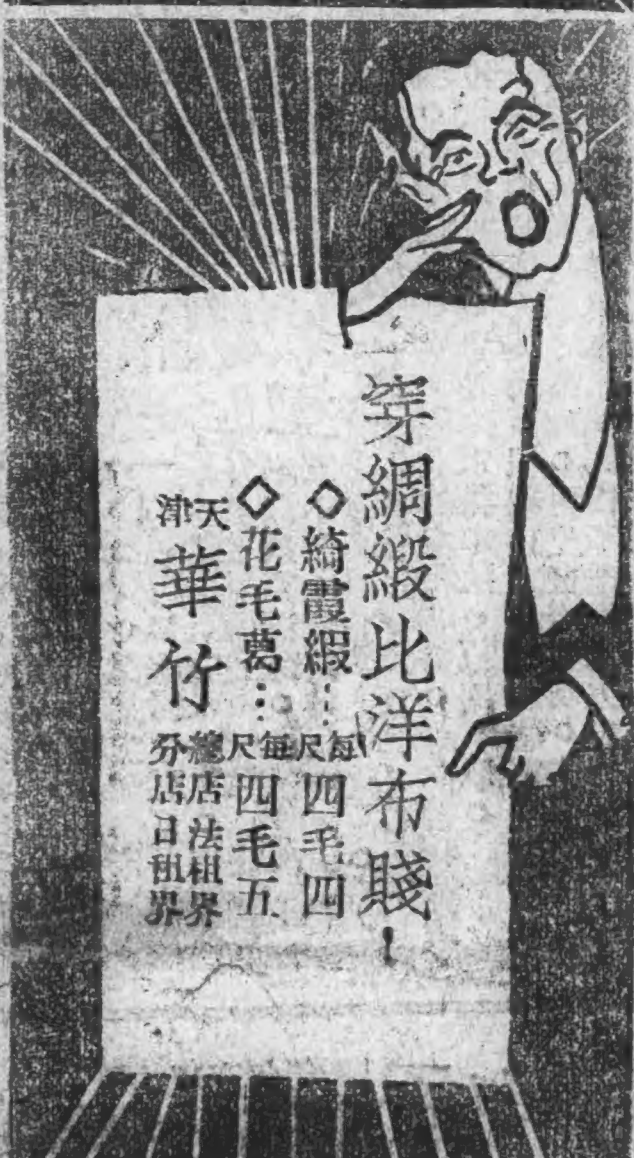 穿綢緞比洋布賤！
◇綺霞緞…每尺四毛四
◇花毛葛…每尺四毛五
天津華竹
總店法租界
分店日租界